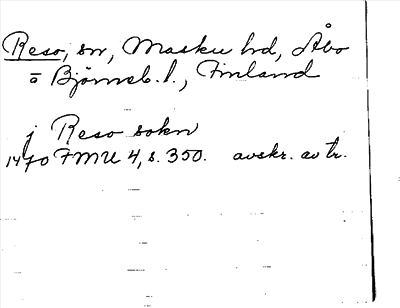 Reso, sn, Masku hd, Åbo
o Björneb. l., Finland
j Reso sokn
1470 FMU 4, s. 350. avskr. av tr.